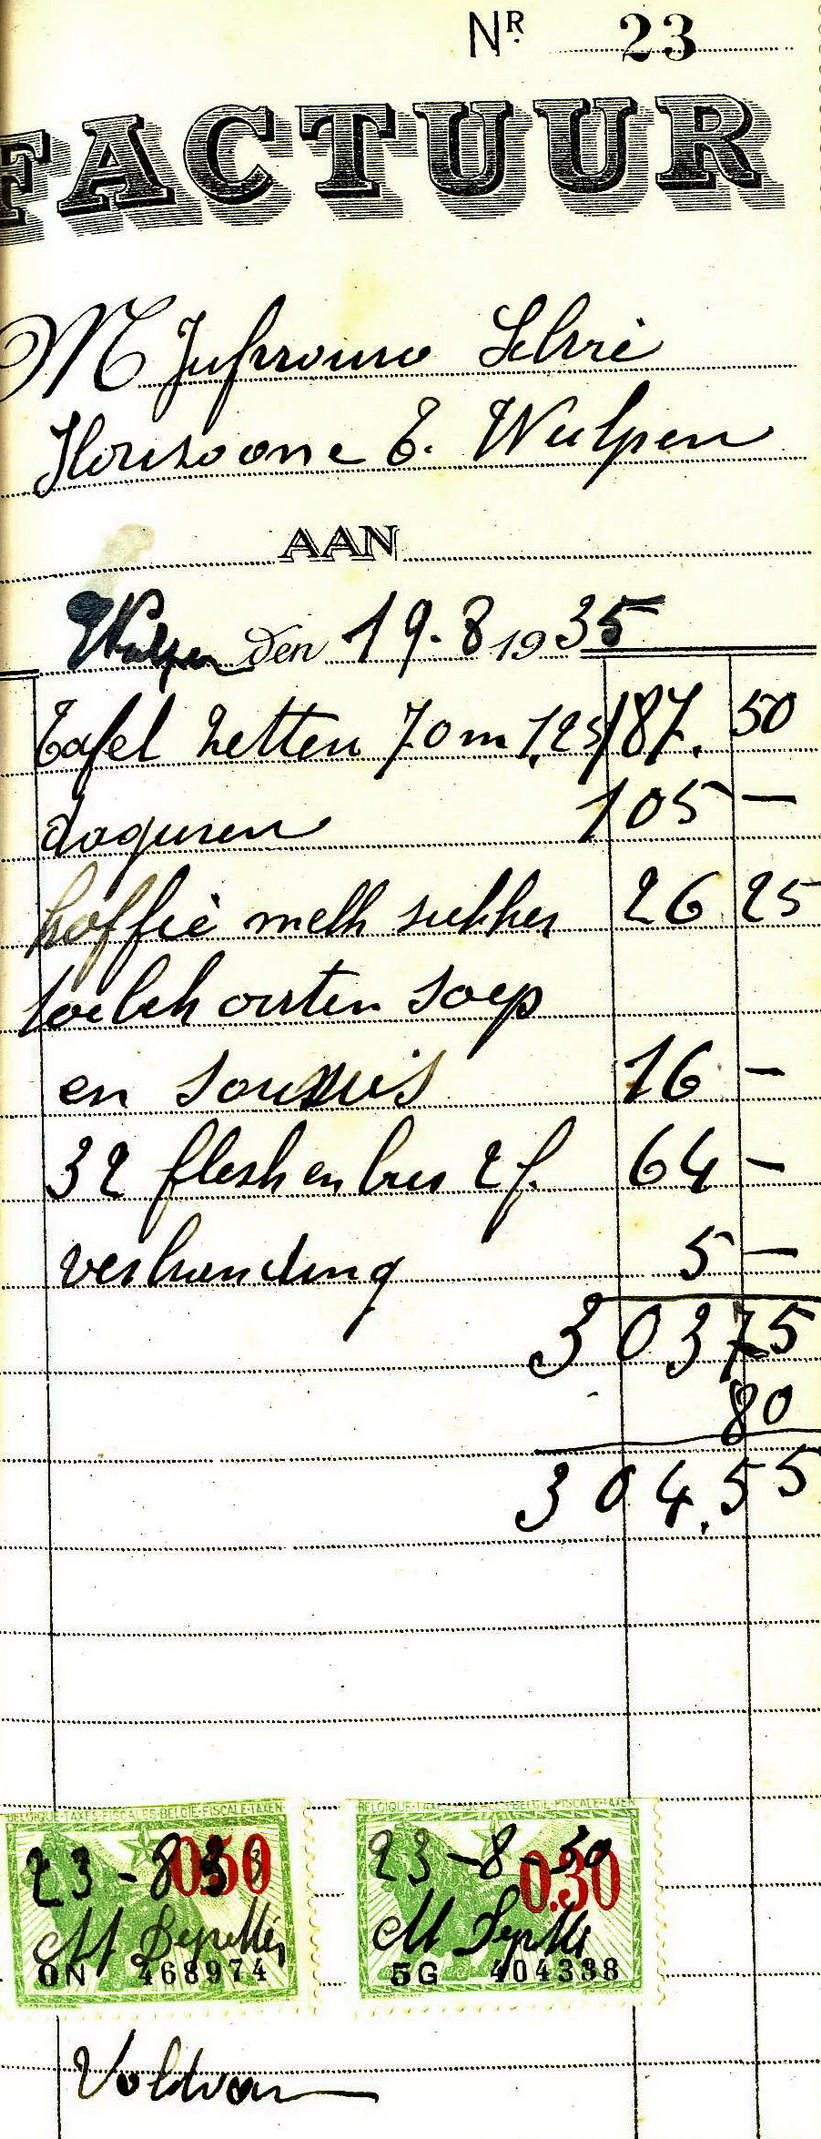 Nr. 23
FACTUUR
M Jufvrouw
E. Wulpen
AAN
Wulpen den 19.8 1935
Tafel zetten 70 m 1,25 187. 50
105 —
koffie melk suikker 26 25
soep
en 16 —
32 fleshen bier 2 f. 64 —
5 —
303 75
80
304.55
BELGIQUE-TAXES-FISCALES-BELGIE-FISCALE-TAXEN
BELGIQUE-TAXES-FISCALES-BELGIE-FISCALE-TAXEN
23-8 0.50
23-8 0.30
M
M
0N 468974
5G 404338
Voldaan